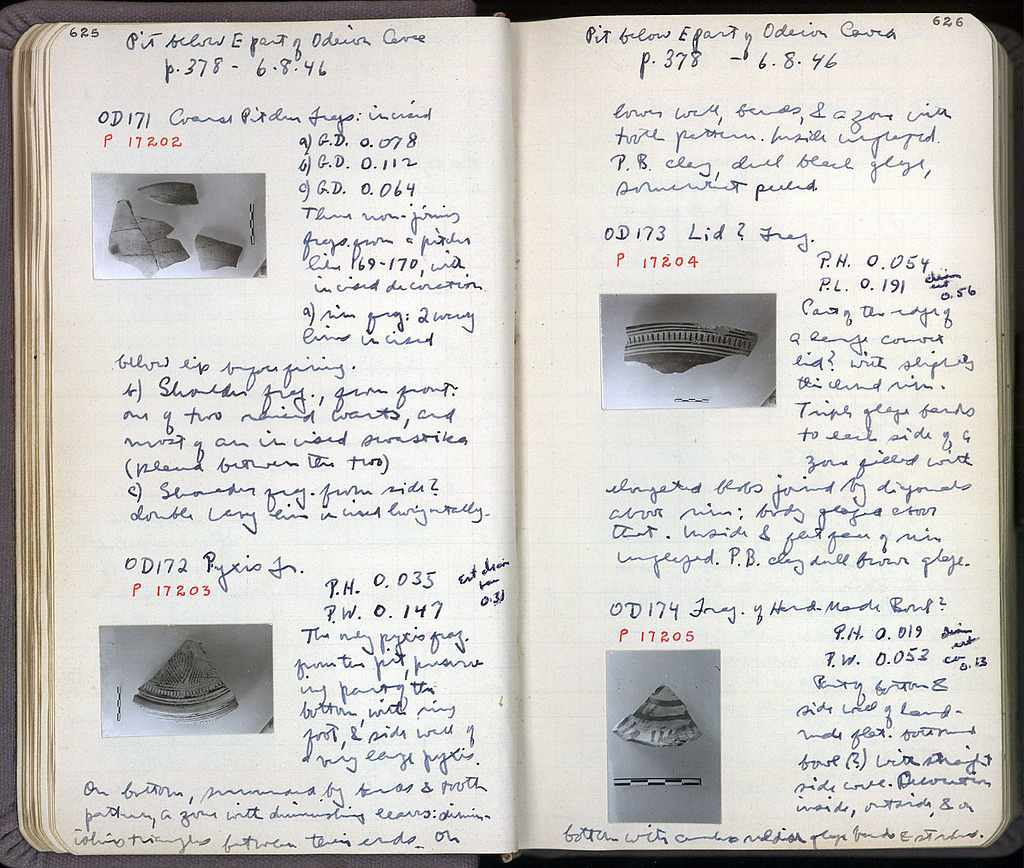 625
Pit below E part of Odeion Cavea
p. 378 - 6.8.46
OD171 Coarse Pitcher frags: incised
P 17202
a) G.D. 0.078
b) G.D. 0.112
c) G.D. 0.064
Three non-joining
frags. from a pitcher
like 169-170, with
incised decoration
a) rim frag: 2 wavy
lines incised
below lip before firing.
b) Shoulder frag., from front:
one of two raised warts, and
most of an incised swastika
(placed between the two)
c) Shoulder frag. from side?
double wavy line incised horizontally.
OD172 Pyxis Fr.
P 17203
P.H. 0.035
P.W. 0.147
Est diam
0.31
The only pyxis frag.
from the pit, preserv-
ing part of the
bottom, with ring
foot, & side wall of
a very large pyxis.
On bottom, surrounded by bands & tooth
pattern, a zone with diminishing leaves: dimin-
ishing triangles between their ends. On
626
Pit below E part of Odeion Cavea
p. 378 - 6.8.46
lower wall, bands, & a zone with
tooth pattern. Inside unglazed.
P.B. clay, dull black glaze,
somewhat peeled.
OD173 Lid? Frag.
P 17204
P.H. 0.054
P.L. 0.191
diam
est
0.56
Part of the edge of
a large convex
lid? with slightly
thickened rim.
Triple glaze bands
to each side of a
zone filled with
elongated blobs joined by diagonals
above rim; body glazed above
that. Inside & flat face of rim
unglazed. P.B. clay dull brown glaze.
OD174 Frag. of Hand-Made Bowl?
P 17205
P.H. 0.019
P.W. 0.053
diam
est
ca 0.13
Part of bottom &
side wall of hand-
made flat-bottomed
bowl (?) with straight
side wall. Decoration
inside, outside, & on
bottom with glaze bands &